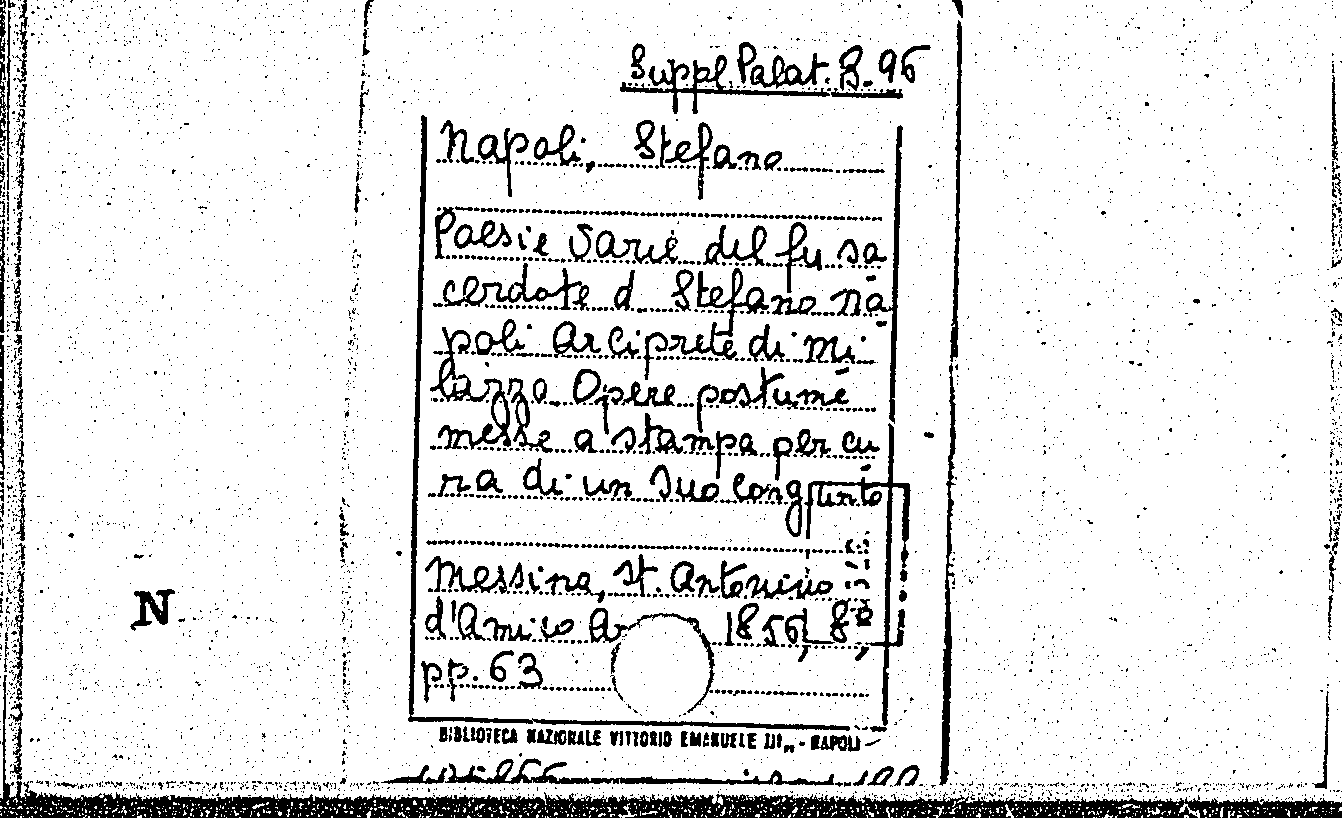 Suppl. Palat. B. 96
Napoli, Stefano
Poesie varie del fu sa
cerdote d. Stefano Na
poli Arciprete di Mi
lazzo. Opere postume
messe a stampa per cu
ra di un suo congiunto
Messina, St. Antonino
d'Amico 1856, 8º,
pp. 63
N
BIBLIOTECA NAZIONALE VITTORIO EMANUELE III„ - NAPOLI